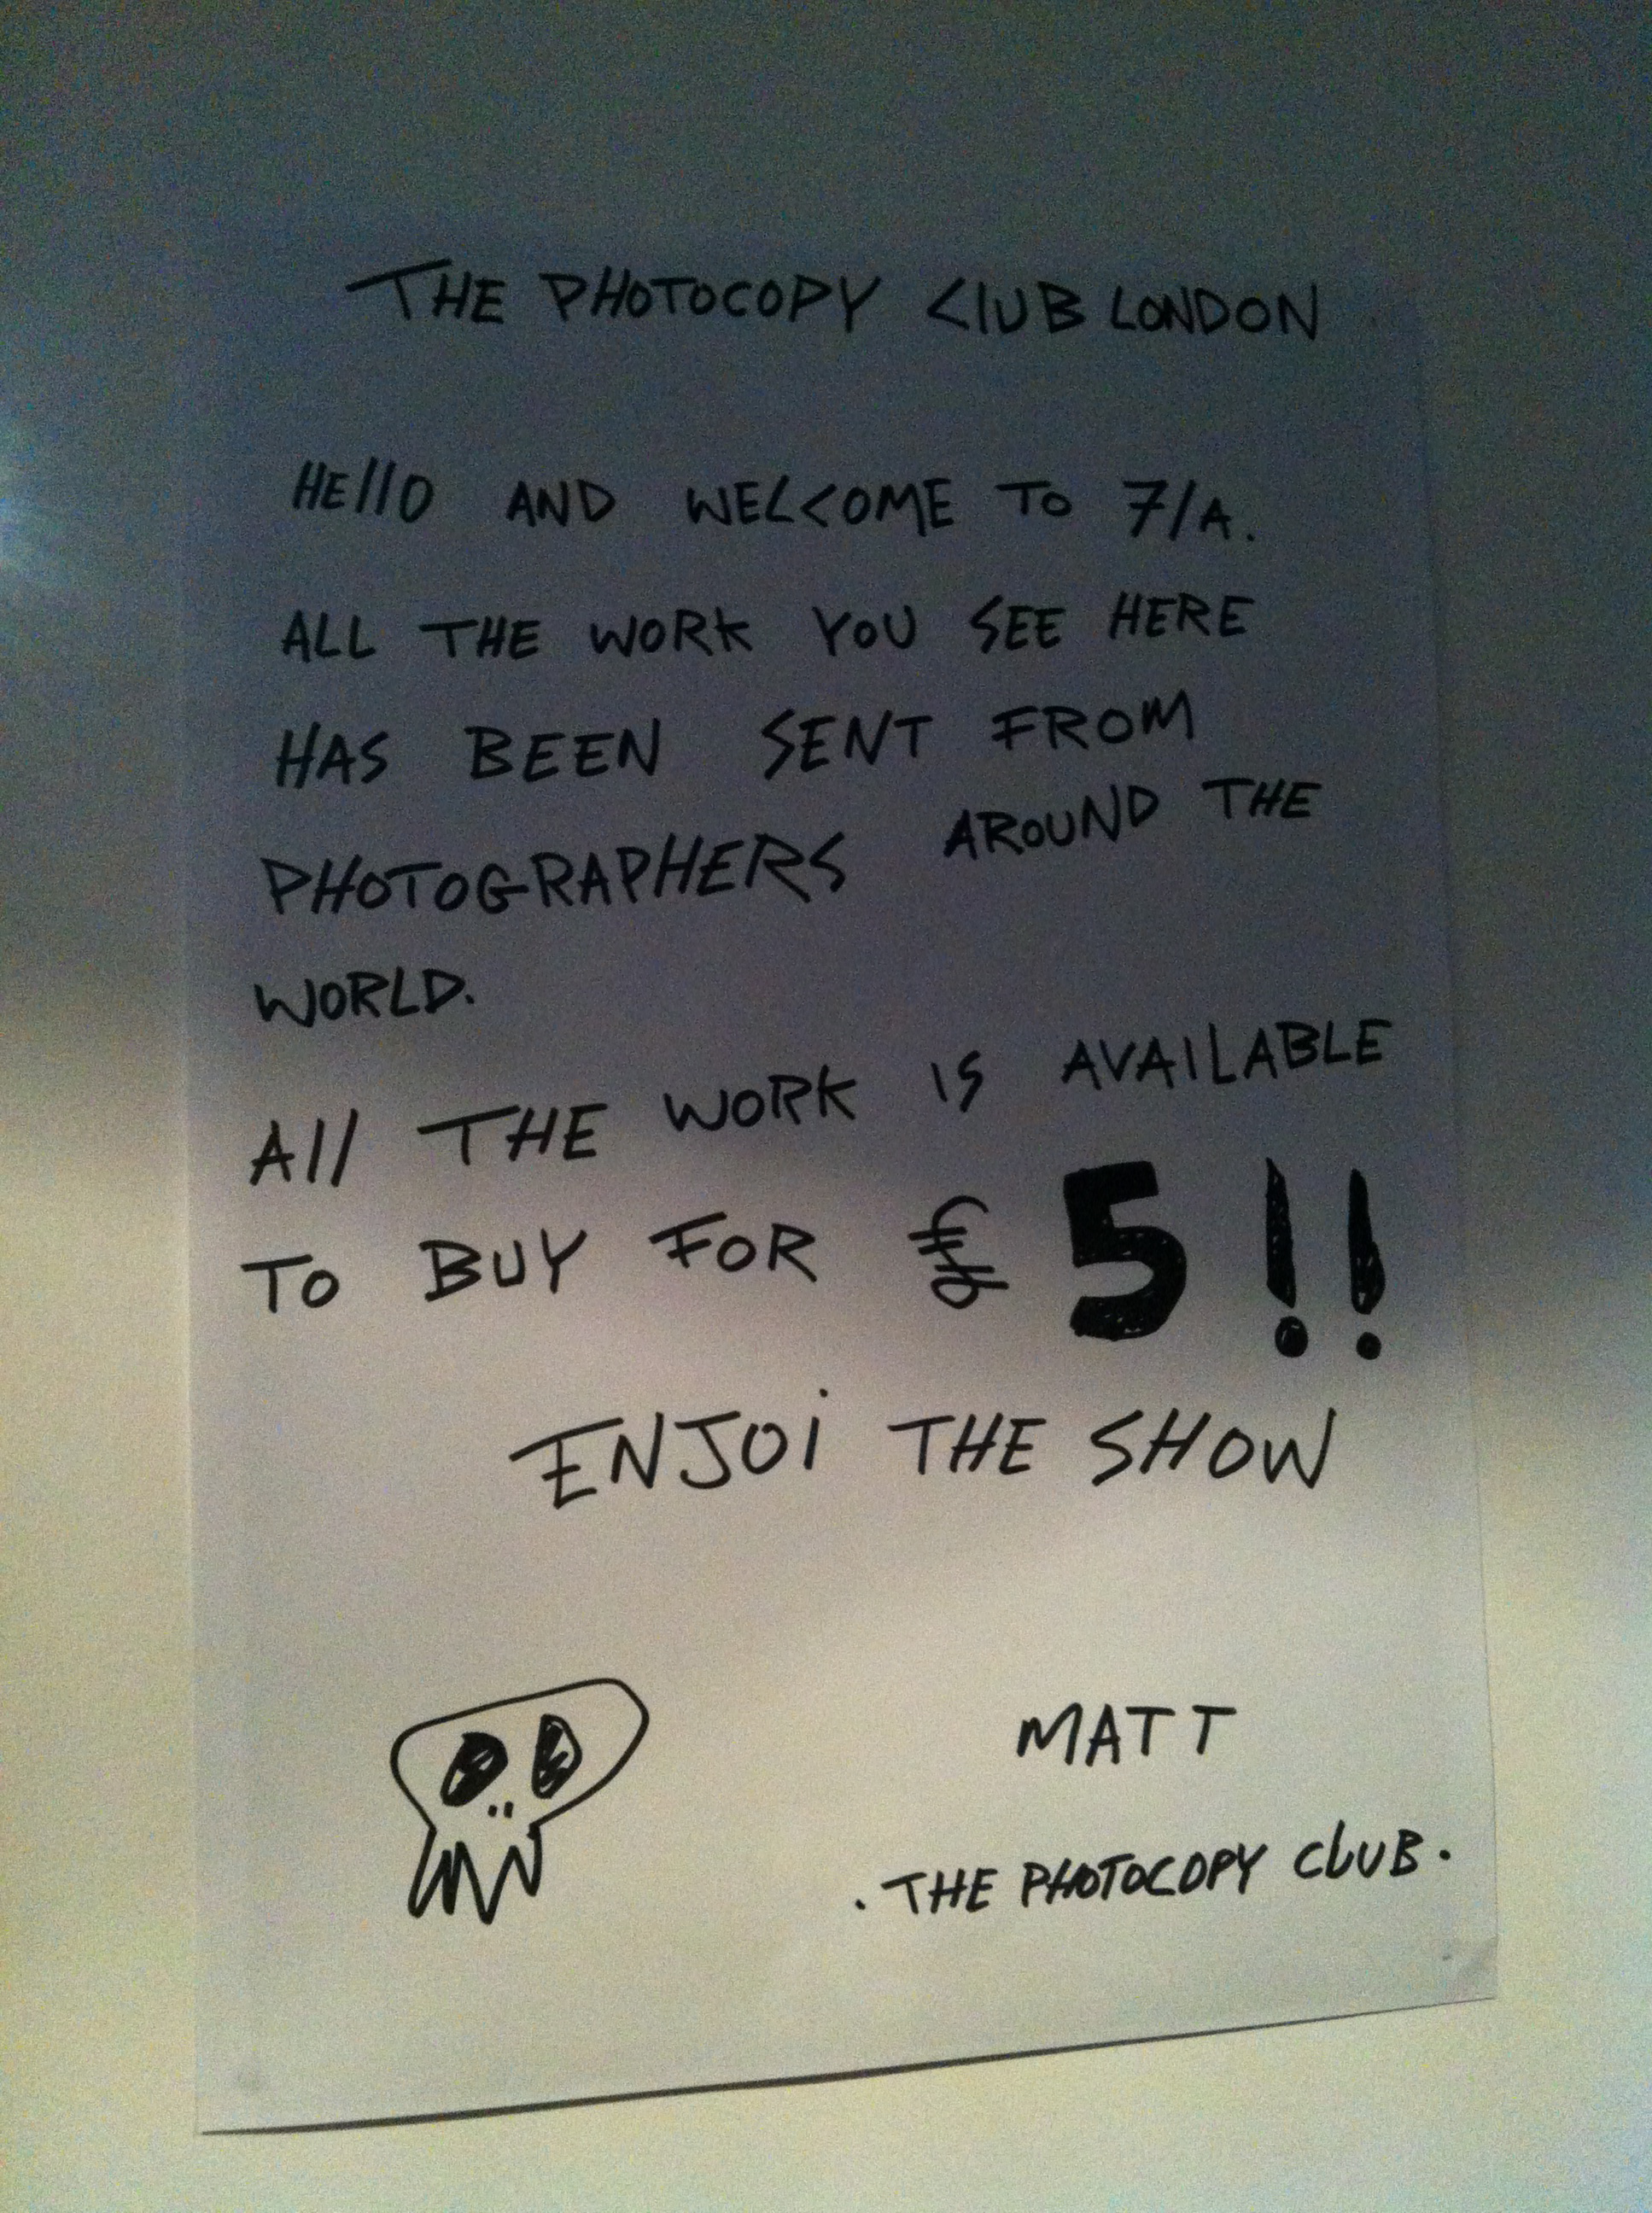 THE PHOTOCOPY ClUB LONDON
HEllO AND WELCOME TO 7/A.
ALL THE WORK YOU SEE HERE
HAS BEEN SENT FROM
PHOTOGRAPHERS AROUND THE
WORLD.
All THE WORK IS AVAILABLE
TO BUY FOR £5!!
ENJOi THE SHOW
MATT
. THE PHOTOCOPY ClUB .